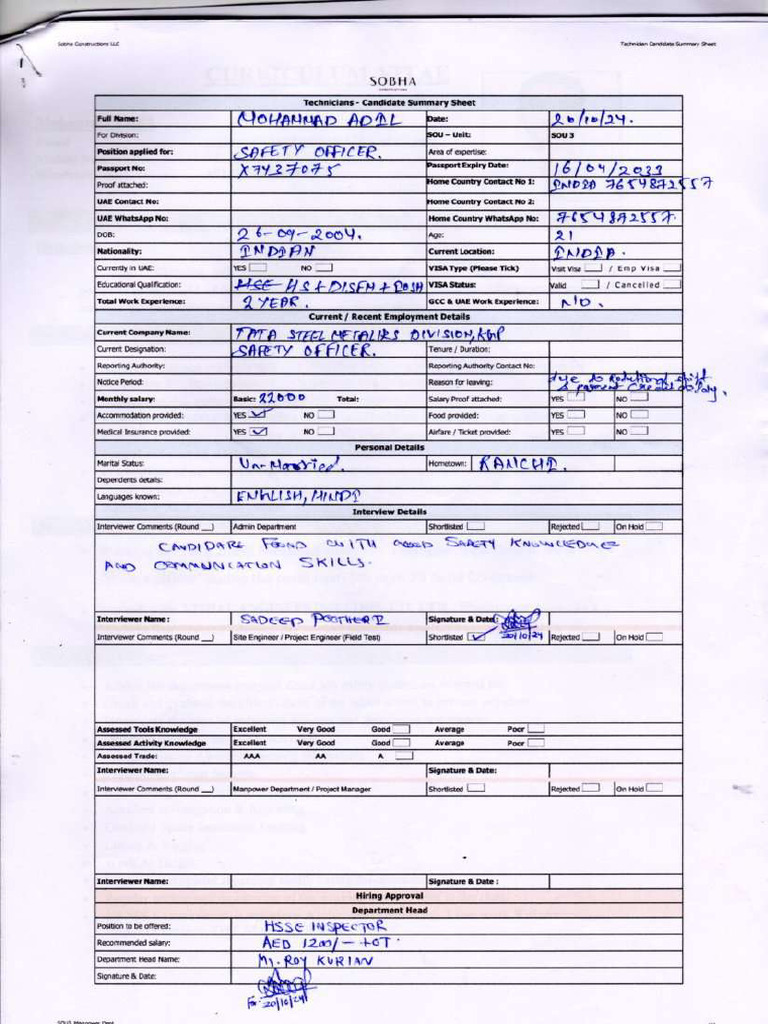 Sobha Constructions LLC Technician Candidate Summary Sheet
SOBHA
Technicians - Candidate Summary Sheet
Full Name: MOHAMMAD ADIL Date: 20/10/24.
For Division: SOU - Unit: SOU 3
Position applied for: SAFETY OFFICER. Area of expertise:
Passport No: X7437075 Passport Expiry Date: 16/04/2033
Proof attached: Home Country Contact No 1: INDIA 7654872557
UAE Contact No: Home Country Contact No 2:
UAE WhatsApp No: Home Country WhatsApp No: 7654872557.
DOB: 26-09-2004. Age: 21
Nationality: INDIAN Current Location: INDIA.
Currently in UAE: YES NO VISA Type (Please Tick) Visit Visa / Emp Visa
Educational Qualification: HS + DISFM + VISA Status: Valid / Cancelled
Total Work Experience: 2 YEAR. GCC & UAE Work Experience: NO.
Current / Recent Employment Details
Current Company Name: TATA STEEL METALIKS DIVISION, KGP
Current Designation: SAFETY OFFICER. Tenure / Duration:
Reporting Authority: Reporting Authority Contact No:
Notice Period: Reason for leaving: due to rotational shift
Monthly salary: Basic: 22000 Total: Salary Proof attached: YES NO
Accommodation provided: YES NO Food provided: YES NO
Medical Insurance provided: YES NO Airfare / Ticket provided: YES NO
Personal Details
Marital Status: Un-Married. Hometown: RANCHI.
Dependents details:
Languages known: ENGLISH, HINDI
Interview Details
Interviewer Comments (Round __) Admin Department Shortlisted Rejected On Hold
CANDIDATE FOUND WITH GOOD SAFETY KNOWLEDGE
AND COMMUNICATION SKILLS.
Interviewer Name: SADEEP Signature & Date: 20/10/24
Interviewer Comments (Round __) Site Engineer / Project Engineer (Field Test) Shortlisted Rejected On Hold
Assessed Tools Knowledge Excellent Very Good Good Average Poor
Assessed Activity Knowledge Excellent Very Good Good Average Poor
Assessed Trade: AAA AA A
Interviewer Name: Signature & Date:
Interviewer Comments (Round __) Manpower Department / Project Manager Shortlisted Rejected On Hold
Interviewer Name: Signature & Date :
Hiring Approval
Department Head
Position to be offered: HSSE INSPECTOR
Recommended salary: AED 1200/- + OT.
Department Head Name: Mr. ROY KURIAN
Signature & Date:
For 20/10/24
SOU3 Manpower Dept